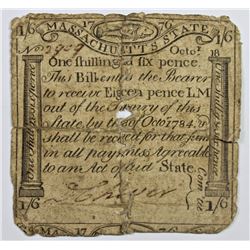 1/6 MASSACHUSETTS STATE 1776 1/6
No Octor. 18
One shilling & six pence.
This Bill entitles the Bearer
to receive Eighteen pence L.M
out of the Treasury of this
State, by the 18 of Octo 1784, &
shall be received for that sum
in all payments Agreeable
to an Act of said State.
Cheever
Com.tee
1/6 1/6